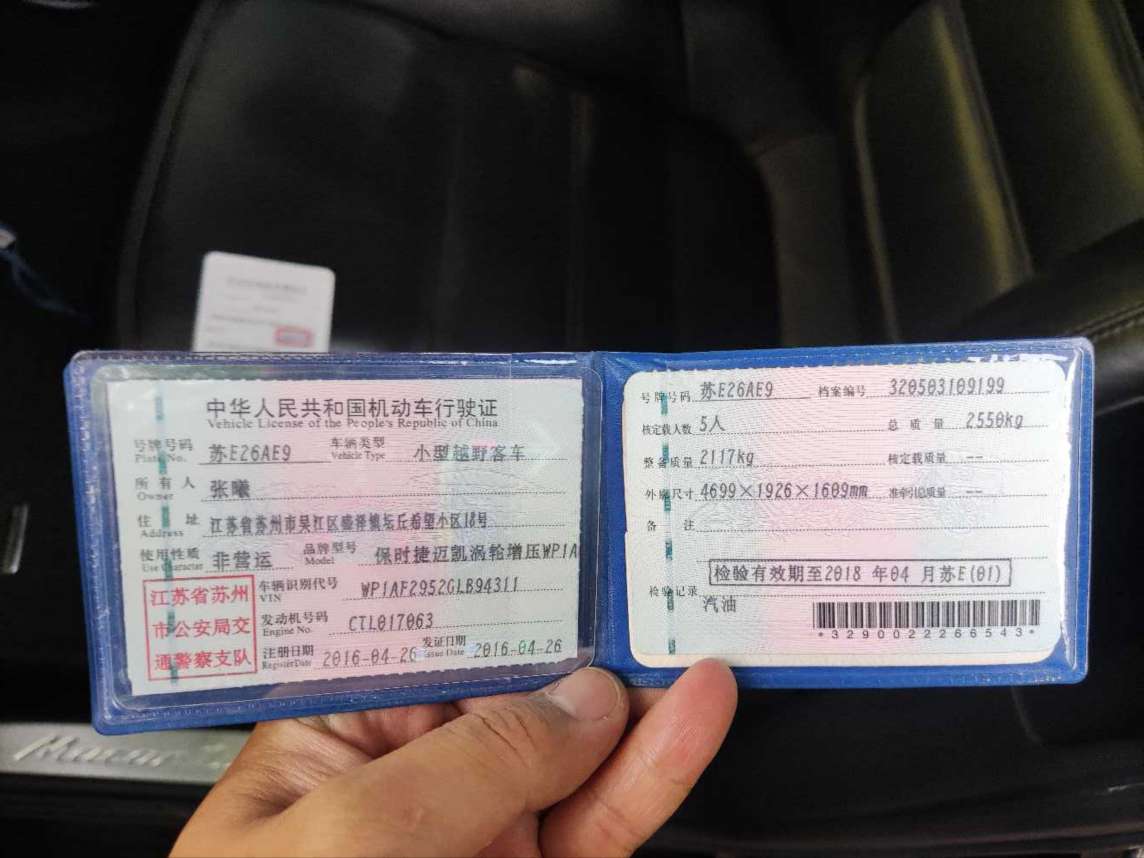 中华人民共和国机动车行驶证
Vehicle License of the People's Republic of China
号牌号码 苏E26AE9 车辆类型 小型越野客车
Plate No. Vehicle Type
所有人 张曦
Owner
住址 江苏省苏州市吴江区盛泽镇坛丘希望小区18号
Address
使用性质 非营运 品牌型号 保时捷迈凯涡轮增压WP1A
Use Character Model
江苏省苏州
市公安局交
通警察支队
车辆识别代号 WP1AF2952GLB94311
VIN
发动机号码 CTL017063
Engine No.
注册日期 2016-04-26 发证日期 2016-04-26
Register Date Issue Date
号牌号码 苏E26AE9 档案编号 320503109199
核定载人数 5人 总质量 2550kg
整备质量 2117kg 核定载质量 --
外廓尺寸 4699×1926×1609mm 准牵引总质量 --
备注
检验有效期至2018 年04 月苏E(01)
检验记录
汽油
*3290022266543*
Macan